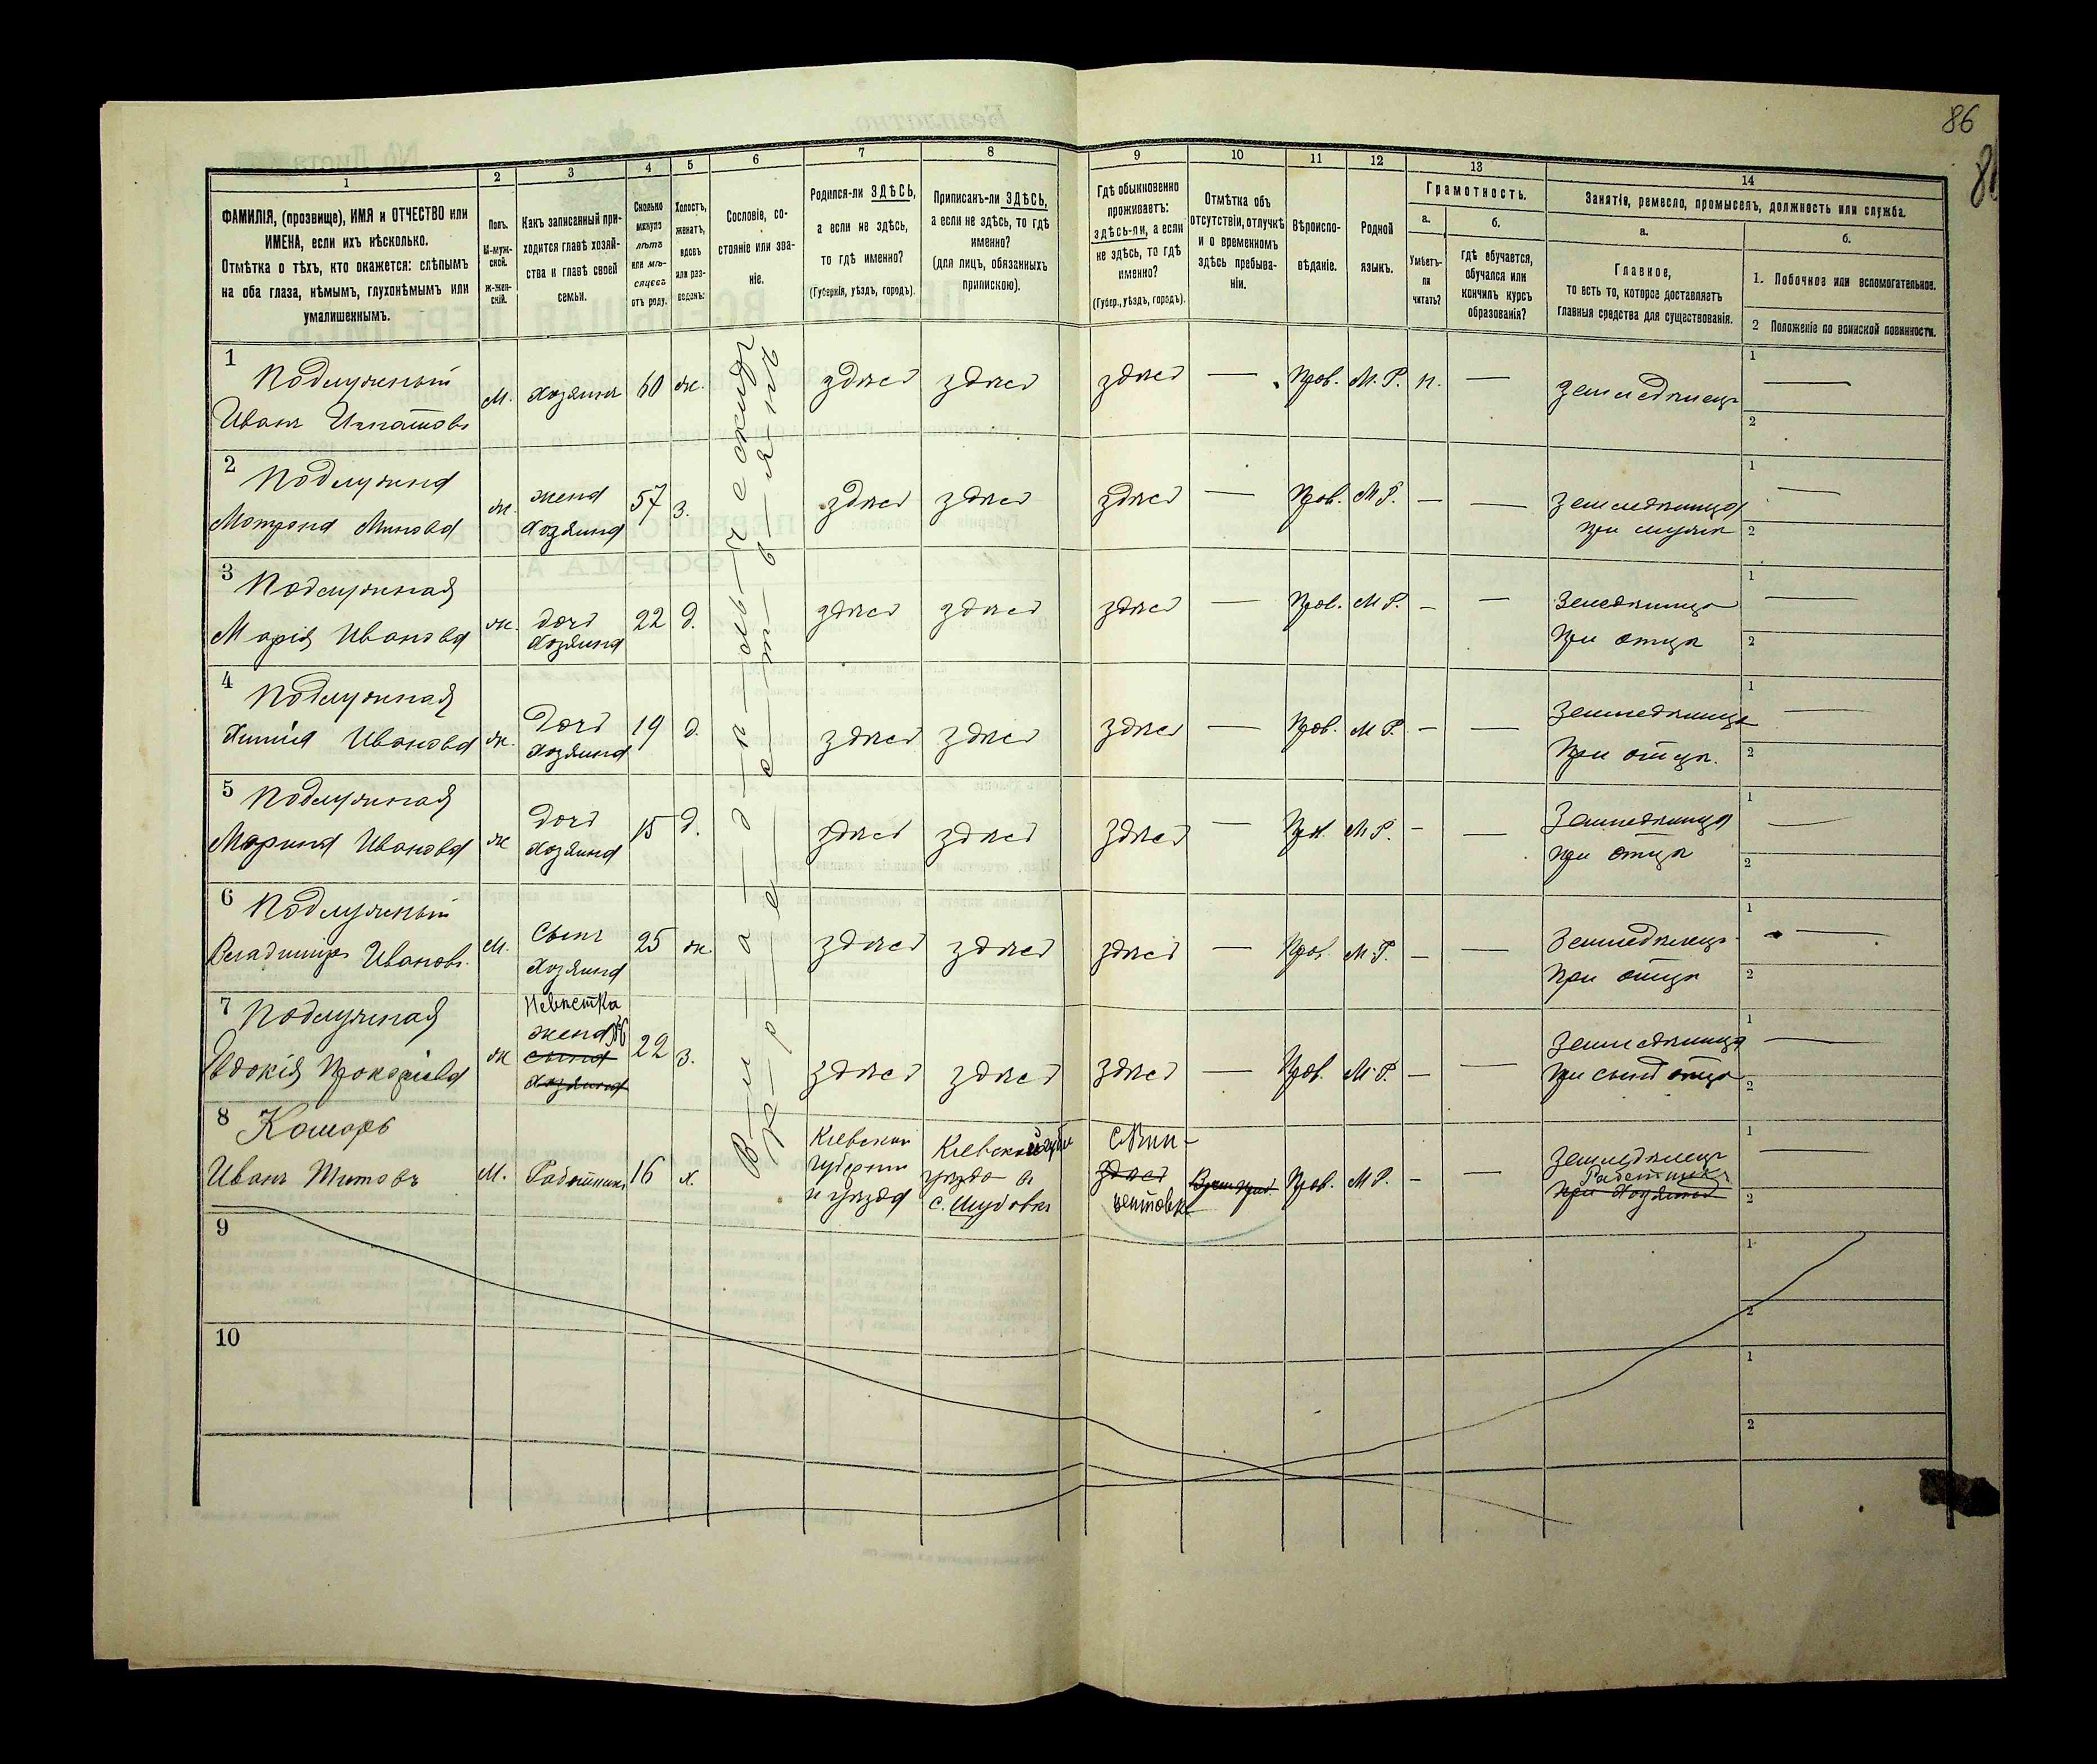 86
1
2
3
4
5
6
7
8
9
10
11
12
13
14
ФАМИЛІЯ, (прозвище), ИМЯ и ОТЧЕСТВО или
ИМЕНА, если ихъ нѣсколько.
Отмѣтка о тѣхъ, кто окажется: слѣпымъ
на оба глаза, нѣмымъ, глухонѣмымъ или
умалишеннымъ.
Полъ.
М-муж-
ской.
ж-жен-
скій.
Какъ записанный при-
ходится главѣ хозяй-
ства и главѣ своей
семьи.
Сколько
минуло
лѣтъ
или мѣ-
сяцевъ
отъ роду.
Холостъ,
женатъ,
вдовъ
или раз-
веденъ.
Сословіе, со-
стояніе или зва-
ніе.
Родился-ли ЗДѢСЬ,
а если не здѣсь,
то гдѣ именно?
(Губернія, уѣздъ, городъ).
Приписанъ-ли ЗДѢСЬ,
а если не здѣсь, то гдѣ
именно?
(для лицъ, обязанныхъ
припискою).
Гдѣ обыкновенно
проживаетъ:
здѣсь-ли, а если
не здѣсь, то гдѣ
именно?
(Губер., уѣздъ, городъ).
Отмѣтка объ
отсутствіи, отлучкѣ
и о временномъ
здѣсь пребыва-
ніи.
Вѣроиспо-
вѣданіе.
Родной
языкъ.
Грамотность.
а.
Умѣетъ-
ли
читать?
б.
Гдѣ обучается,
обучался или
кончилъ курсъ
образованія?
Занятіе, ремесло, промыселъ, должность или служба.
а.
Главное,
то есть то, которое доставляетъ
главныя средства для существованія.
б.
1. Побочное или вспомогательное.
2 Положеніе по воинской повинности.
1
Подлужный
Иванъ Игнатовъ
М. хозяинъ 60 ж. здѣсь здѣсь здѣсь — Прав. М. Р. н. — земледѣлецъ
1 —
2
2
Подлужна
Мотрона Минова
ж. жена
хозяина
57 з. здѣсь здѣсь здѣсь — Прав. М Р. — — земледѣлица
при мужѣ
1 —
2
3
Подлужная
Марія Иванова
ж. дочь
хозяина
22 д. здѣсь здѣсь здѣсь — Прав. М Р. — —
при отцѣ
1 —
2
4
Подлужная
Иванова
ж. дочь
хозяина
19 д. здѣсь здѣсь здѣсь — Прав. М Р. — — земледѣлица
при отцѣ.
1 —
2
5
Подлужная
Марина Иванова
ж дочь
хозяина
15 д. здѣсь здѣсь здѣсь — Прав. М Р. — — земледѣлица
при отцѣ
1 —
2
6
Подлужный
Владиміръ Ивановъ.
М. сынъ
хозяина
25 ж. здѣсь здѣсь здѣсь — Прав. М Р. — — земледѣлецъ
при отцѣ
1 —
2
7
Подлужная
Евдокія Прокопіева
ж Невѣстка
жена
сына
хозяина
22 з. здѣсь здѣсь здѣсь — Прав. М. Р. — — земледѣлица
при
1 —
2
8
Комаръ
Иванъ Титовъ
М. Работникъ 16 х.
Кіевской
губерніи
и уѣзда
Кіевской губ
уѣзда въ
с.
здѣсь
Прав. М Р. — — земледѣлецъ
Работникъ
при хозяинѣ
1 —
2
9
1
2
10
1
2